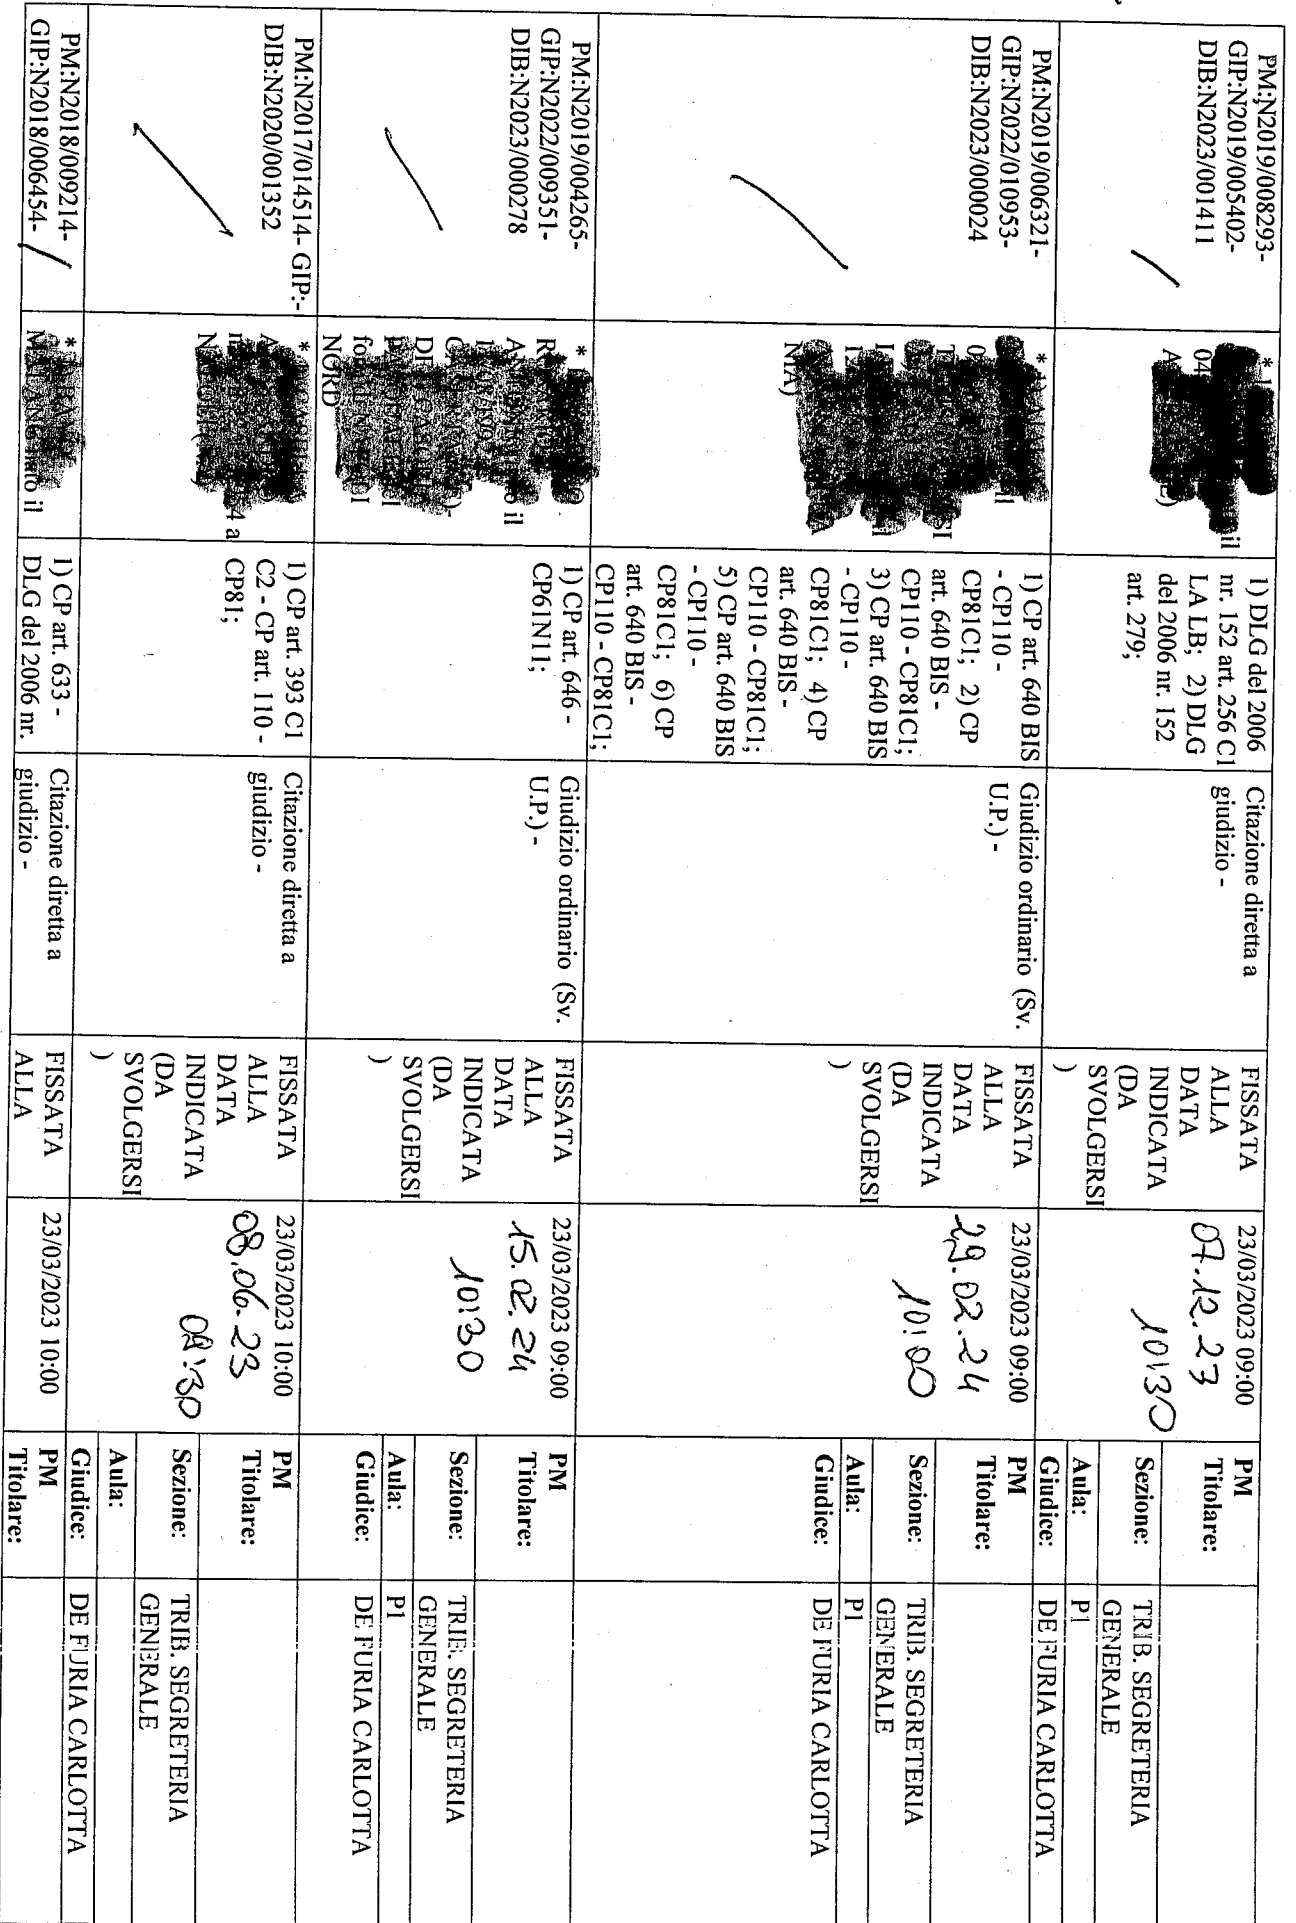 PM:N2019/008293-
GIP:N2019/005402-
DIB:N2023/001411
* 1
04
il
A
E)
1) DLG del 2006
nr. 152 art. 256 C1
LA LB; 2) DLG
del 2006 nr. 152
art. 279;
Citazione diretta a
giudizio -
FISSATA
ALLA
DATA
INDICATA
(DA
SVOLGERSI
)
23/03/2023 09:00
07.12.23
10:30
PM
Titolare:
Sezione: TRIB. SEGRETERIA
GENERALE
Aula: P1
Giudice: DE FURIA CARLOTTA
PM:N2019/006321-
GIP:N2022/010953-
DIB:N2023/000024
NIA)
1) CP art. 640 BIS
- CP110 -
CP81C1; 2) CP
art. 640 BIS -
CP110 - CP81C1;
3) CP art. 640 BIS
- CP110 -
CP81C1; 4) CP
art. 640 BIS -
CP110 - CP81C1;
5) CP art. 640 BIS
- CP110 -
CP81C1; 6) CP
art. 640 BIS -
CP110 - CP81C1;
Giudizio ordinario (Sv.
U.P.) -
FISSATA
ALLA
DATA
INDICATA
(DA
SVOLGERSI
)
23/03/2023 09:00
29.02.24
10:00
PM
Titolare:
Sezione: TRIB. SEGRETERIA
GENERALE
Aula: P1
Giudice: DE FURIA CARLOTTA
PM:N2019/004265-
GIP:N2022/009351-
DIB:N2023/000278
il
NORD
1) CP art. 646 -
CP61N11;
Giudizio ordinario (Sv.
U.P.) -
FISSATA
ALLA
DATA
INDICATA
(DA
SVOLGERSI
)
23/03/2023 09:00
15.02.24
10:30
PM
Titolare:
Sezione: TRIB. SEGRETERIA
GENERALE
Aula: P1
Giudice: DE FURIA CARLOTTA
PM:N2017/014514- GIP:-
DIB:N2020/001352
4 a
1) CP art. 393 C1
C2 - CP art. 110 -
CP81;
Citazione diretta a
giudizio -
FISSATA
ALLA
DATA
INDICATA
(DA
SVOLGERSI
)
23/03/2023 10:00
08.06.23
09:30
PM
Titolare:
Sezione: TRIB. SEGRETERIA
GENERALE
Aula:
Giudice: DE FURIA CARLOTTA
PM:N2018/009214-
GIP:N2018/006454-
nato il
1) CP art. 633 -
DLG del 2006 nr.
Citazione diretta a
giudizio -
FISSATA
ALLA
23/03/2023 10:00
PM
Titolare: